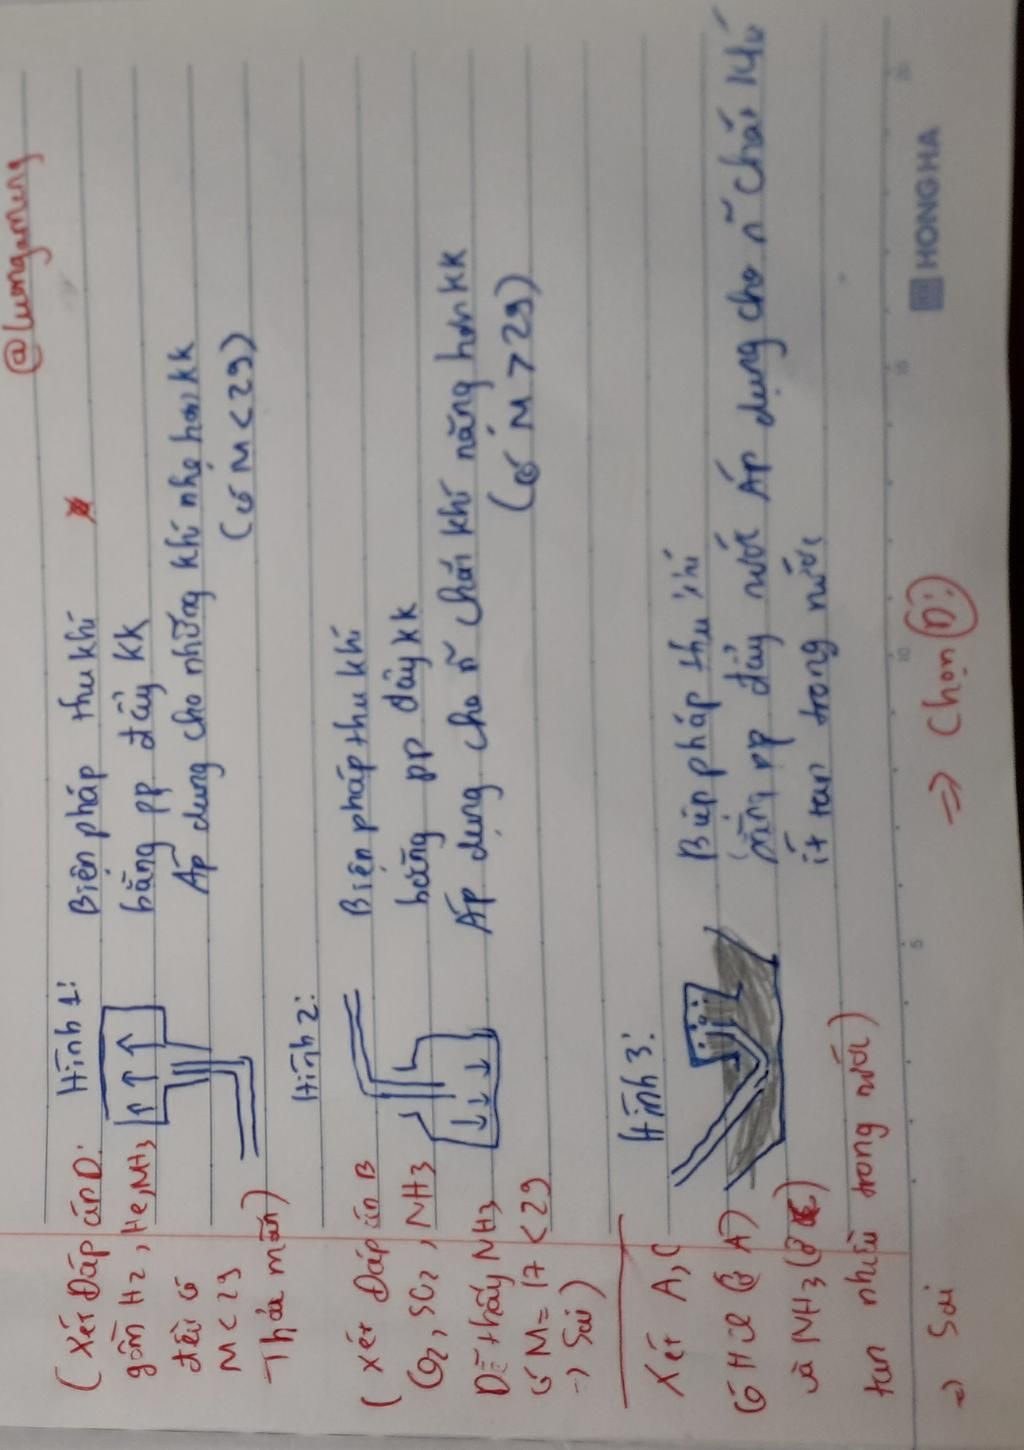 @luongaming
Hình 1:
Biện pháp thu khí
bằng pp đẩy kk
Áp dụng cho những khí nhẹ hơn kk
(có M < 29)
(Xét Đáp án D:
gồm H2, He, NH3
đều có
M < 29
Thỏa mãn)
Hình 2:
Biện pháp thu khí
bằng pp đẩy kk
Áp dụng cho ~ chất khí nặng hơn kk
(có M > 29)
(Xét Đáp án B
CO2, SO2, NH3
Dễ thấy NH3
có M = 17 < 29
=> Sai)
Hình 3:
Biện pháp thu khí
bằng pp đẩy nước Áp dụng cho ~ chất khí
ít tan trong nước
Xét A, C
Có HCl (ở A)
và NH3 (ở C)
tan nhiều trong nước)
=> Sai
=> Chọn
5
10
15
20
HONG HA